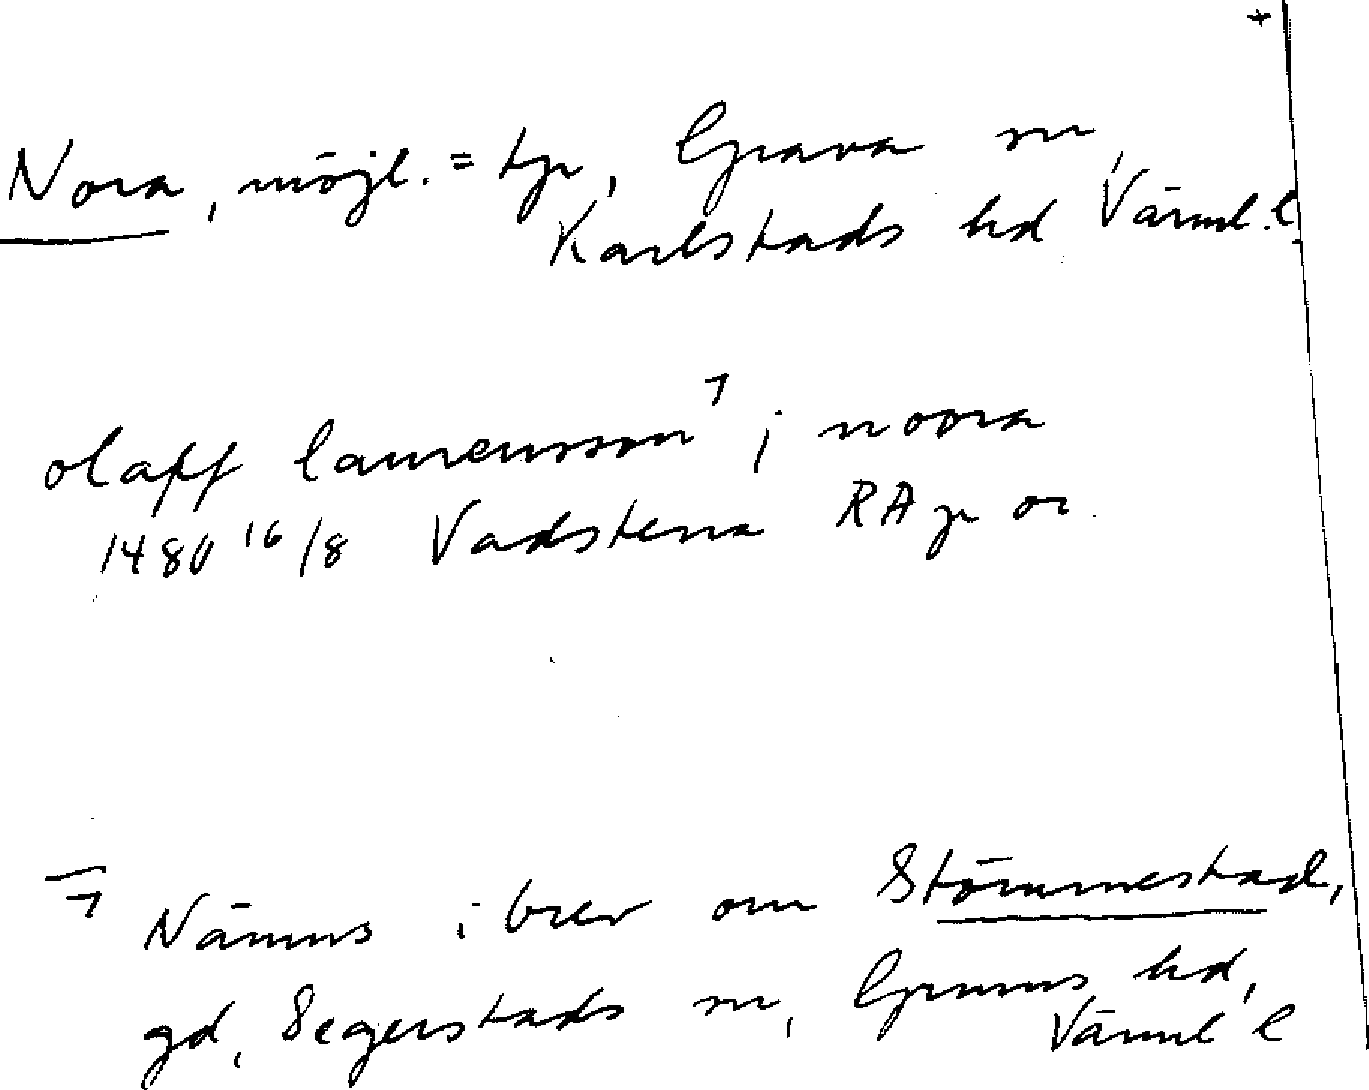 +
Nora, möjl. = tp, Grava sn,
Karlstads hd Värml. l.
olaff laurensson ⁊ i noora
1480 16/8 Vadstena RA p or.
⁊ Nämns i brev om Stömmestad,
gd, Segerstads sn, Grums hd,
Värml l